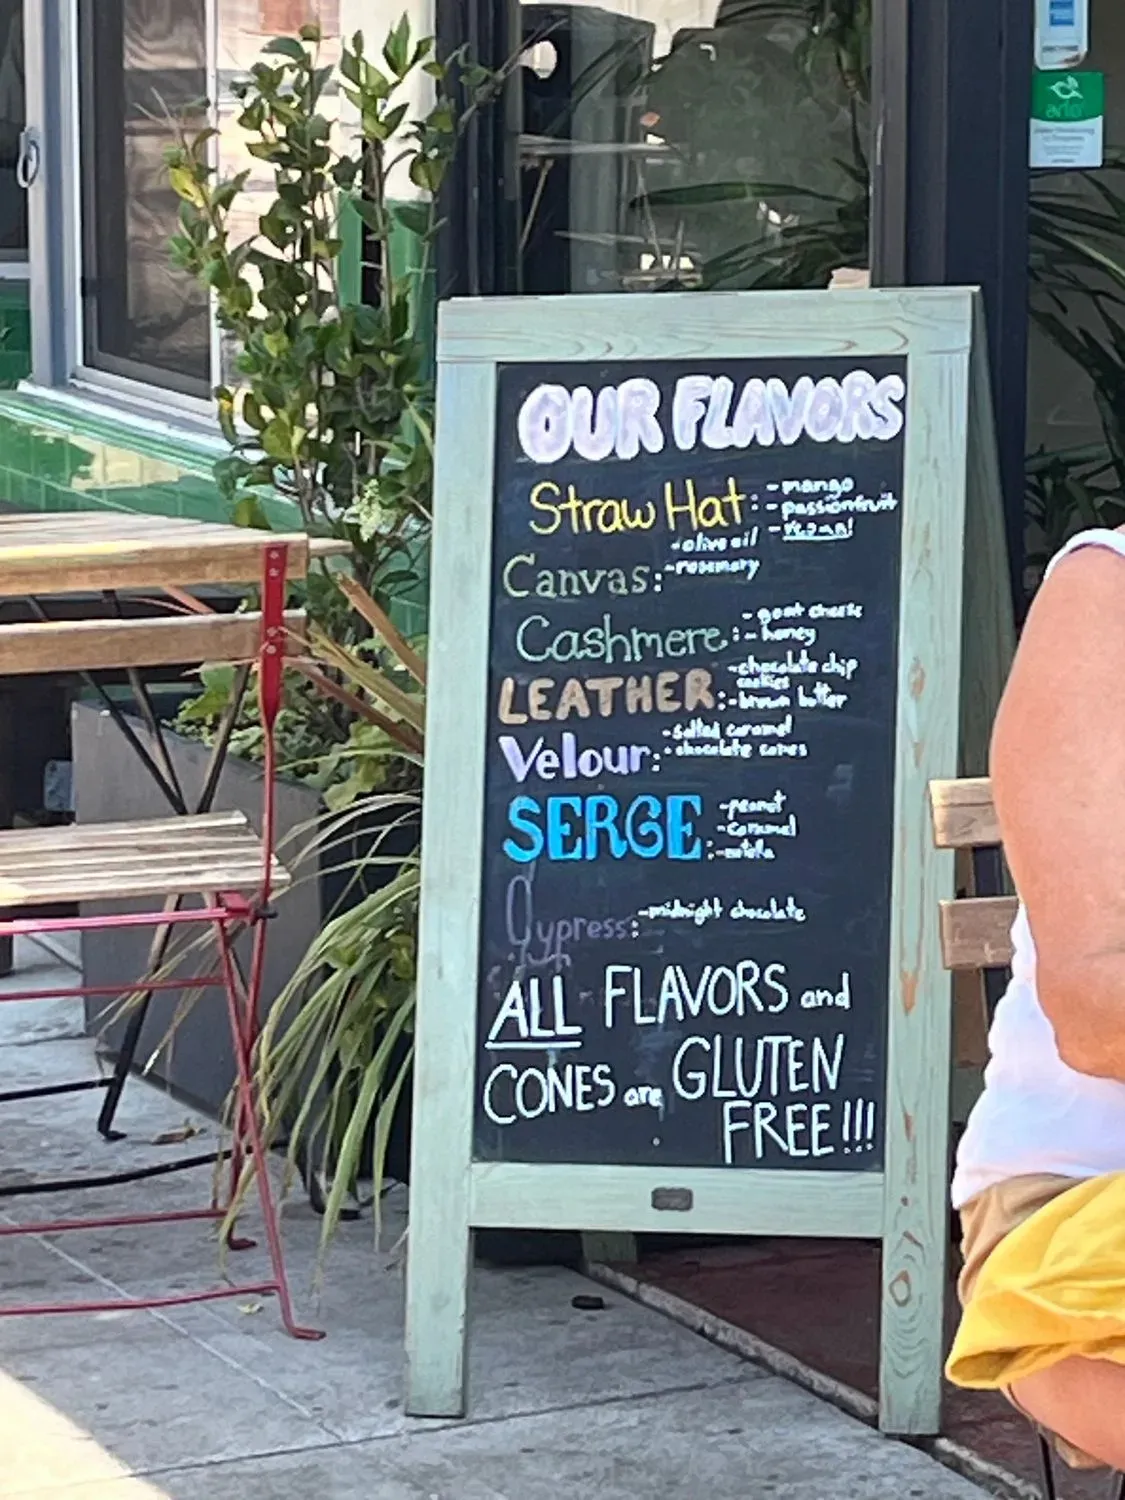 OUR FLAVORS
Straw Hat: - mango
- passionfruit
- vegan!
Canvas: - olive oil
- rosemary
Cashmere: - goat cheese
- honey
LEATHER: - chocolate chip
cookies
- brown butter
Velour: - salted caramel
- chocolate cones
SERGE: - peanut
- caramel
- nutella
Cypress: - midnight chocolate
ALL FLAVORS and
CONES are GLUTEN
FREE!!!
arlo